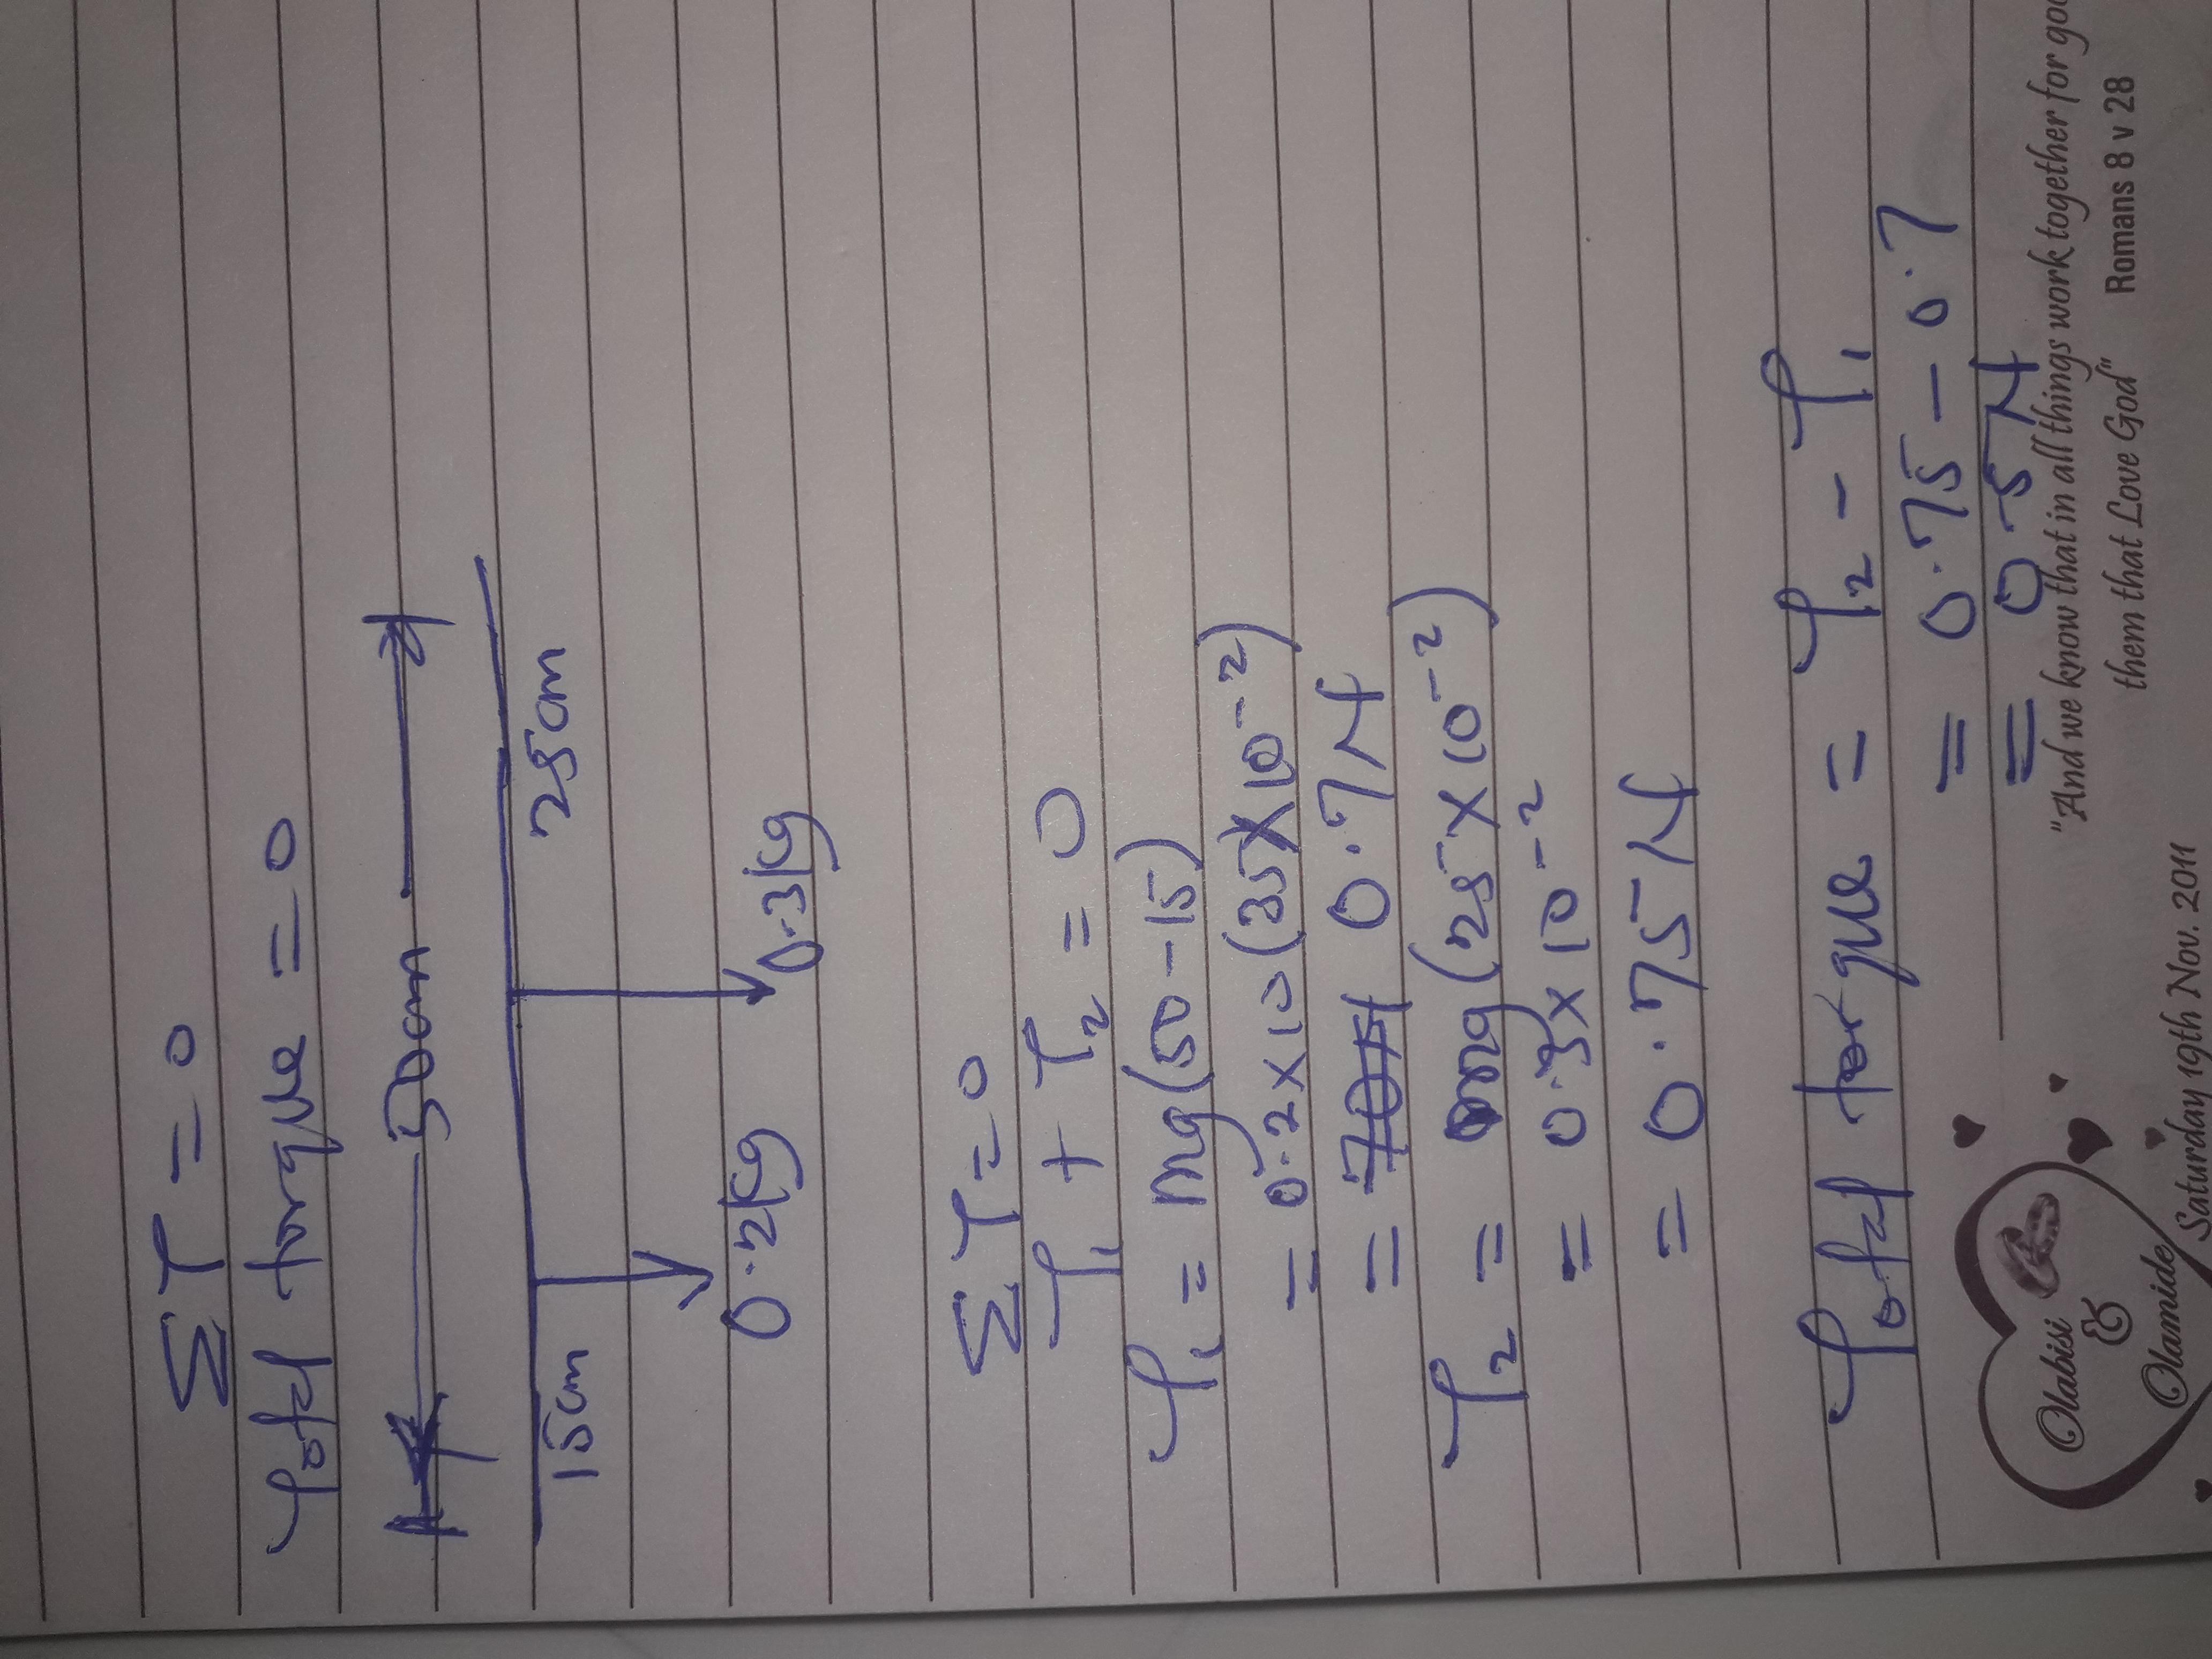 ΣT = 0
Total torque = 0
50cm
15cm 25cm
0.2kg 0.3kg
ΣT = 0
T₁ + T₂ = 0
T₁ = mg(50 - 15)
= 0.2 × 10 (35 × 10⁻²)
= 0.7N
T₂ = mg(25 × 10⁻²)
= 0.3 × 10⁻²
= 0.75N
Total torque = T₂ - T₁
= 0.75 - 0.7
= 0.5N
Olabisi
&
Olamide
Saturday 19th Nov. 2011
"And we know that in all things work together for
them that Love God"
Romans 8 v 28